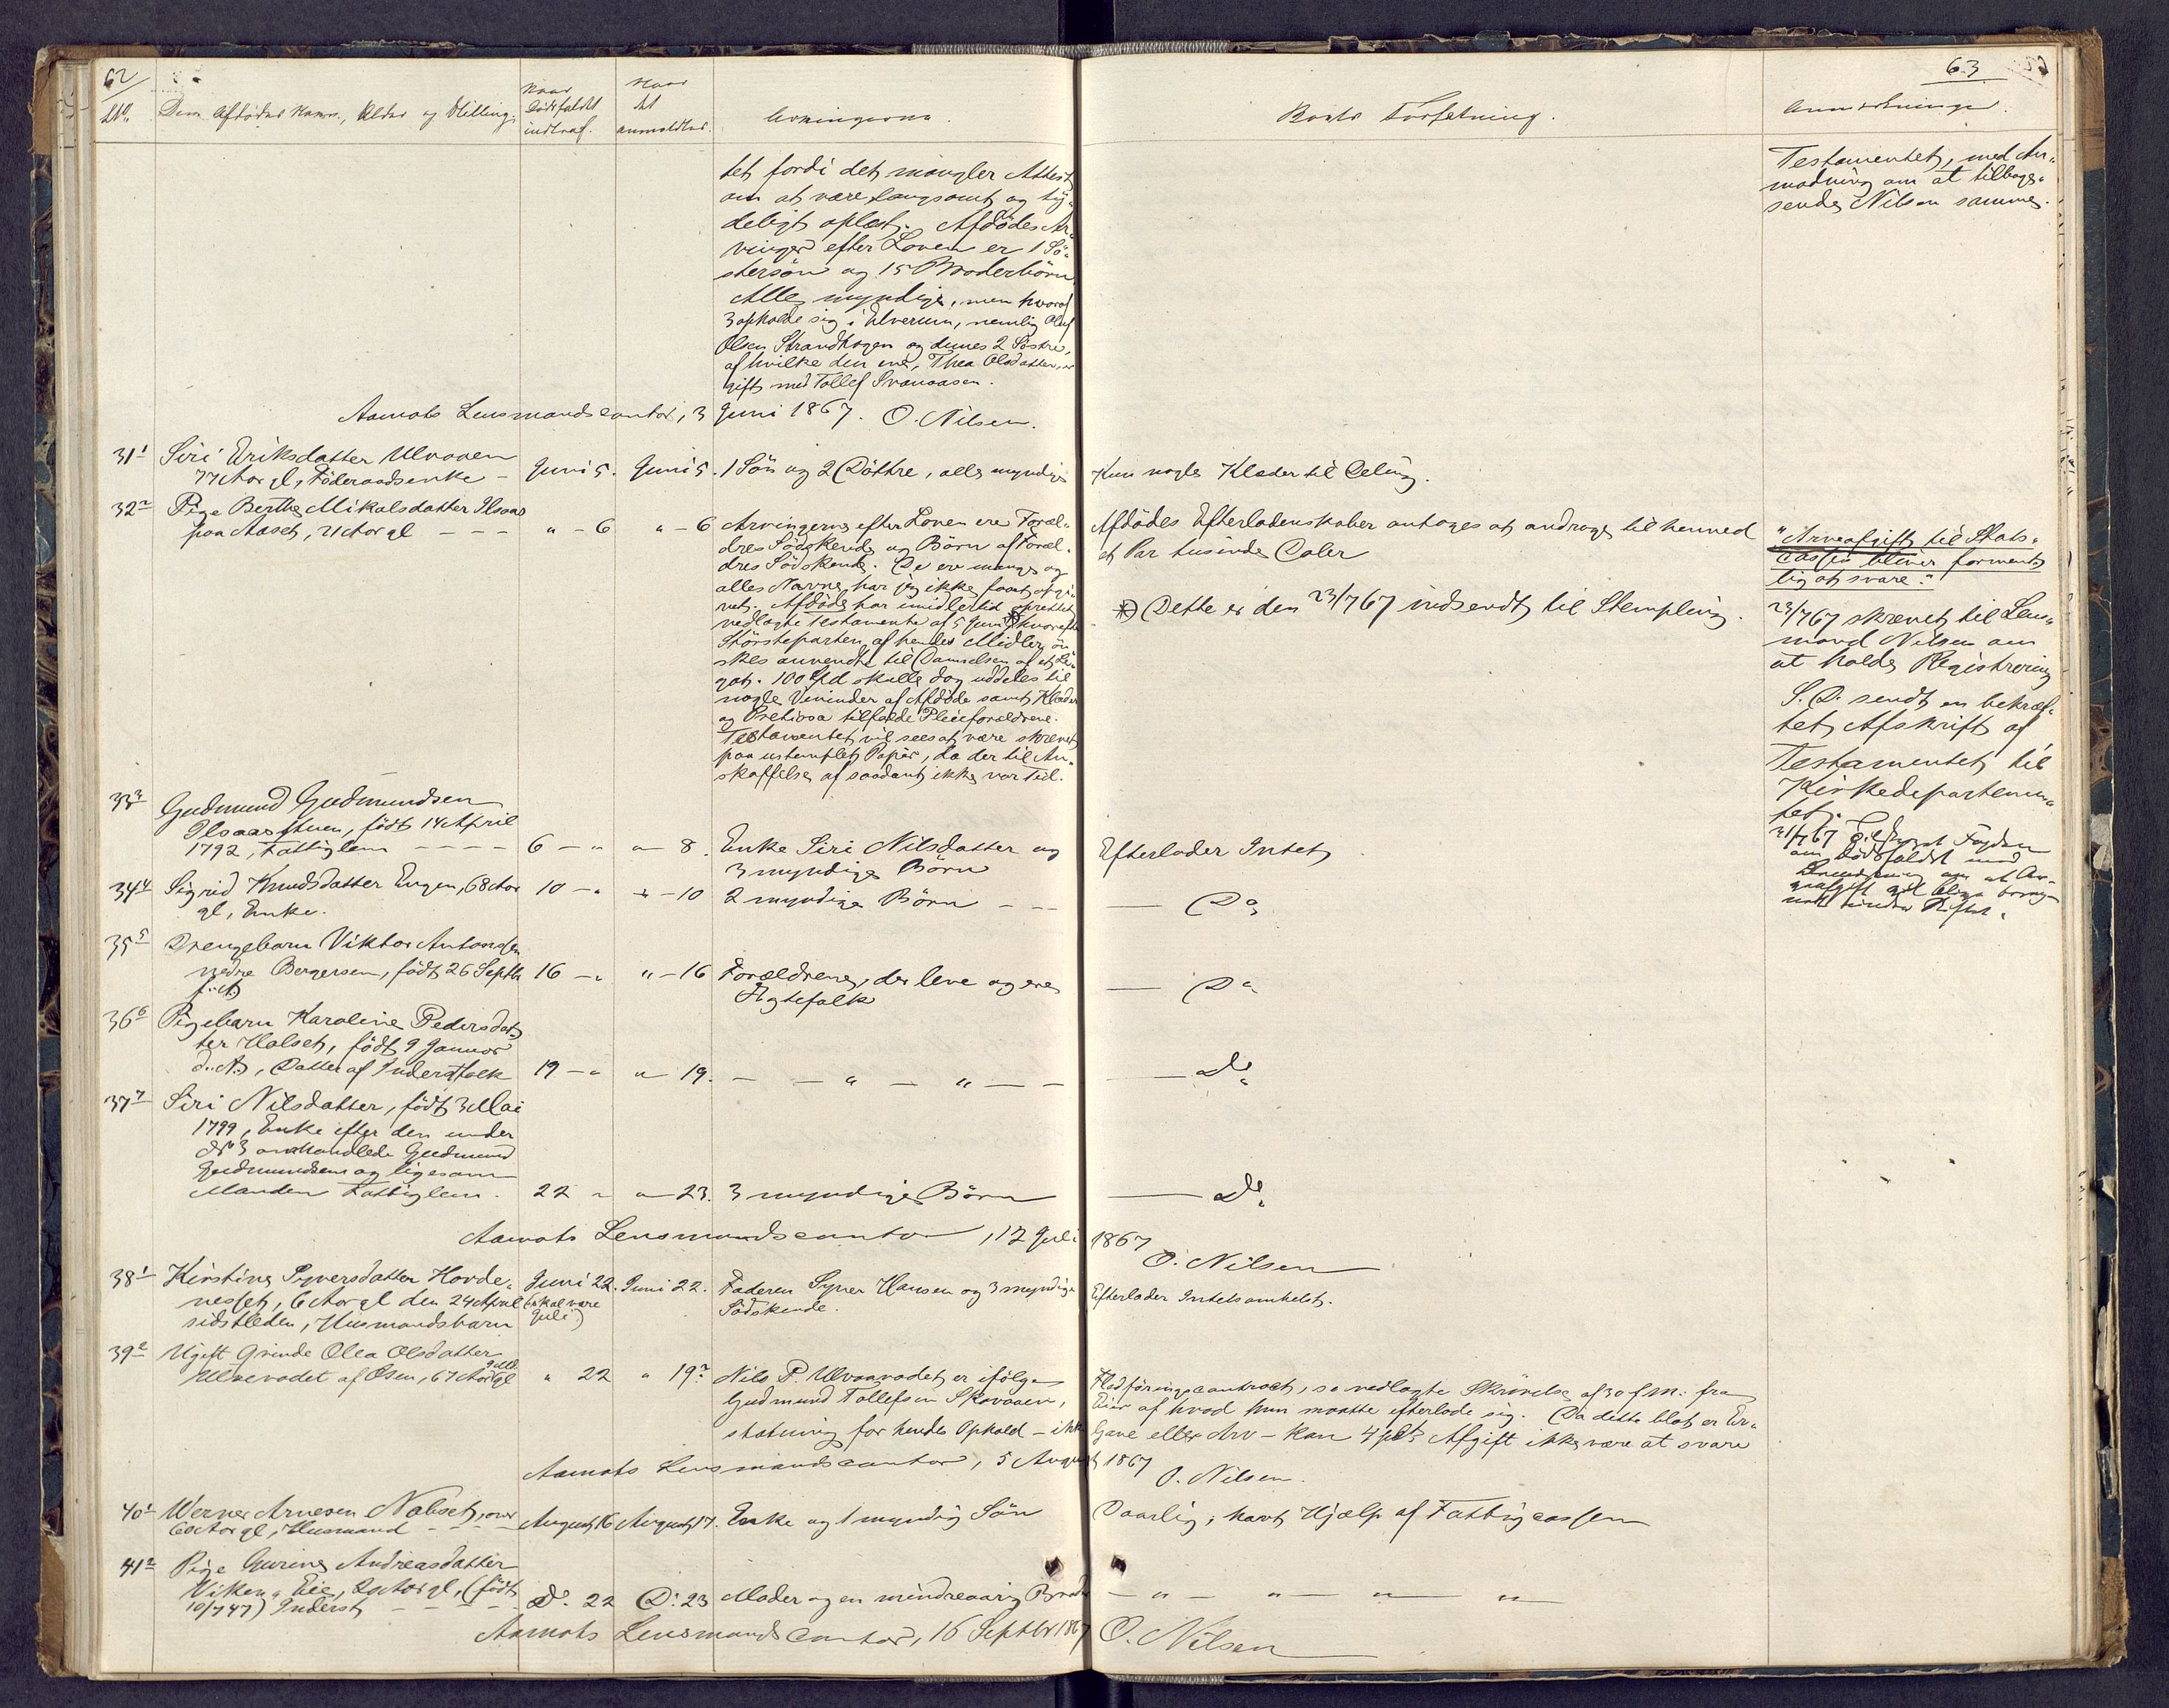 62
No.
Den Afdödes Navn, Alder og Stilling.
Naar
Dödsfaldet
indtraf.
Naar
det
anmeldtes.
Arvingerne.
Boets Forfatning.
63
Anmærkninger.
tet fordi det mangler Attest
om at være langsomt og ty-
deligt oplæst. Afdödes Ar-
vinger efter Loven er 1 Sö-
stersön og 15 Broderbörn
Alle myndige, men hvoraf
3 opholde sig i Elverum, nemlig Oluf
Olsen Strandhagen og dennes 2 Söstre,
af hvilke den ene, Thea Olsdatter, er
gift med Tollef Svenaasen.
Testamentet, med An-
modning om at tilbage-
sende Nilsen samme.
Aamots Lensmandscontor, 3 Juni 1867. O. Nilsen.
31 1 Siri Eriksdatter Ulvaaen
77 Aar gl, Föderaadsenke - Juni 5. Juni 5. 1 Sön og 2 Döttre, alle myndige Kun nogle Klæder til Deling.
32 2 Pige Berthe Mikalsdatter Ilsaas
paa Aaset, 21 Aar gl - - - " - 6 " - 6
Arvingerne efter Loven ere Foræl-
dres Södskende og Börn af Foræl-
dres Södskende. De ere mange og
alles Navne har jeg ikke faaet opgi-
vet. Afdöde har imidlertid oprettet
vedlagte Testamente af 5 Juni *) hvorefter
Störsteparten af hendes Midler ön-
skes anvendte til Dannelsen af et Le-
gat. 100 Spd skulle dog uddeles til
nogle Veninder af Afdöde samt Klæder
og Pretiosa tilfalde Pleieforældrene.
Testamentet vil sees at være skrevet
paa ustemplet Papir, da der til An-
skaffelse af saadant ikke var Tid.
Afdödes Efterladenskaber antages at andrage til henved
et Par tusinde Daler
*) Dette er den 23/7 67 indsendt til Stempling.
"Arveafgift til Stats-
cassen bliver forment-
lig at svare."
23/7 67 skrevet til Lens-
mand Nilsen om
at holde Registrering
S. D. sendt en bekræf-
tet Afskrift af
Testamentet til
Kirkedepartemen-
tet.
33 3 Gudmund Gudmundsen
Ilsaasstuen, födt 14 April
1792, Fattiglem - - - - 6 - " " - 8. Enke Siri Nilsdatter og
3 myndige Börn
Efterlader Intet
34 4 Sigrid Knudsdatter Engen, 68 Aar
gl, Enke. 10 - " " - 10 2 myndige Börn - - - Do
35 5 Drengebarn Viktor Antonsen
nedre Bergersen, födt 26 Septbr
f. A. 16 - " " - 16 Forældrene, der leve og ere
Ægtefolk
- Do
36 6 Pigebarn Karoline Pedersdat-
ter Halset, födt 9 Januar
d. A., Datter af Inderstfolk 19 - " " 19. - - " - " - - - Do
37 7 Siri Nilsdatter, födt 3 Mai
1799, Enke efter den under
No 3 omhandlede Gudmund
Gudmundsen og ligesom
Manden Fattiglem. 22 " " - 23. 3 myndige Börn - Do
Aamots Lensmandscontor, 12 Juli 1867
O. Nilsen
38 1 Kirstine Syversdatter Horde-
nesset, 6 Aar gl den 24 April
sidstleden, Husmandsbarn
Juni 22.
(skal være
Juli)
Juni 22. Faderen Syver Hansen og 3 myndige
Södskende.
Efterlader Intetsomhelst.
39 2 Ugift Qvinde Olea Olsdatter
Ulvevadet af Osen, 67 Aar gl " 22 " 19? Nils P. Ulvaavadet er ifölge
Gudmund Tollefsen Skovaaen,
statning for hendes Ophold - ikke
Fladföringscontract, se vedlagte Skrivelse af 30 f. M. fra
Eier af hvad hun maatte efterlade sig. Da dette blot er Er-
Gave eller Arv - kan 4 pCt. Afgift ikke være at svare
Aamots Lensmandscontor, 5 August 1867
O. Nilsen.
40 1 Werner Arnesen Nabset, over
60 Aar gl, Husmand - - - August 16 August 17. Enke og 1 myndig Sön Daarlig; havt Hjælp af Fattigcassen
41 2 Pige Gurine Andreasdatter
Viken Eie, 20 Aar gl, (födt
10/7 47) Inderst - - - - Do. 22 D: 23 Moder og en mindreaarig Broder - " - " - " - "
Aamots Lensmandscontor, 16 Septbr 1867 O. Nilsen